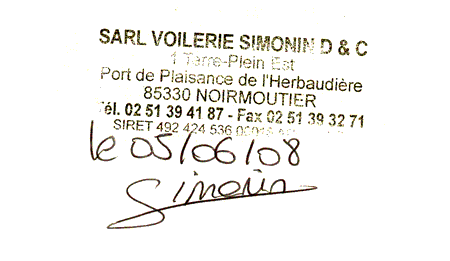 SARL VOILERIE SIMONIN D & C
1 Terre-Plein Est
Port de Plaisance de l'Herbaudière
85330 NOIRMOUTIER
Tél. 02 51 39 41 87 - Fax 02 51 39 32 71
SIRET 492 424 536
le 05/06/08
Simonin